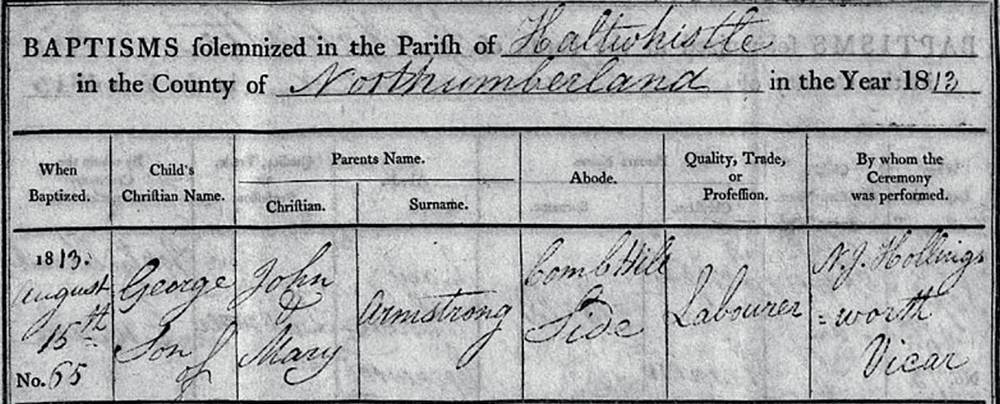 BAPTISMS ſolemnized in the Pariſh of Haltwhistle
in the County of Northumberland in the Year 1813
When
Baptized.
Child's
Chriſtian Name.
Parents Name.
Chriſtian.
Surname.
Abode.
Quality, Trade,
or
Profeſſion.
By whom the
Ceremony
was performed.
1813.
August
15th
No. 65
George
Son of
John
&
Mary
Armstrong
Comb Hill
Side
Labourer
N.J. Hollings
=worth
Vicar